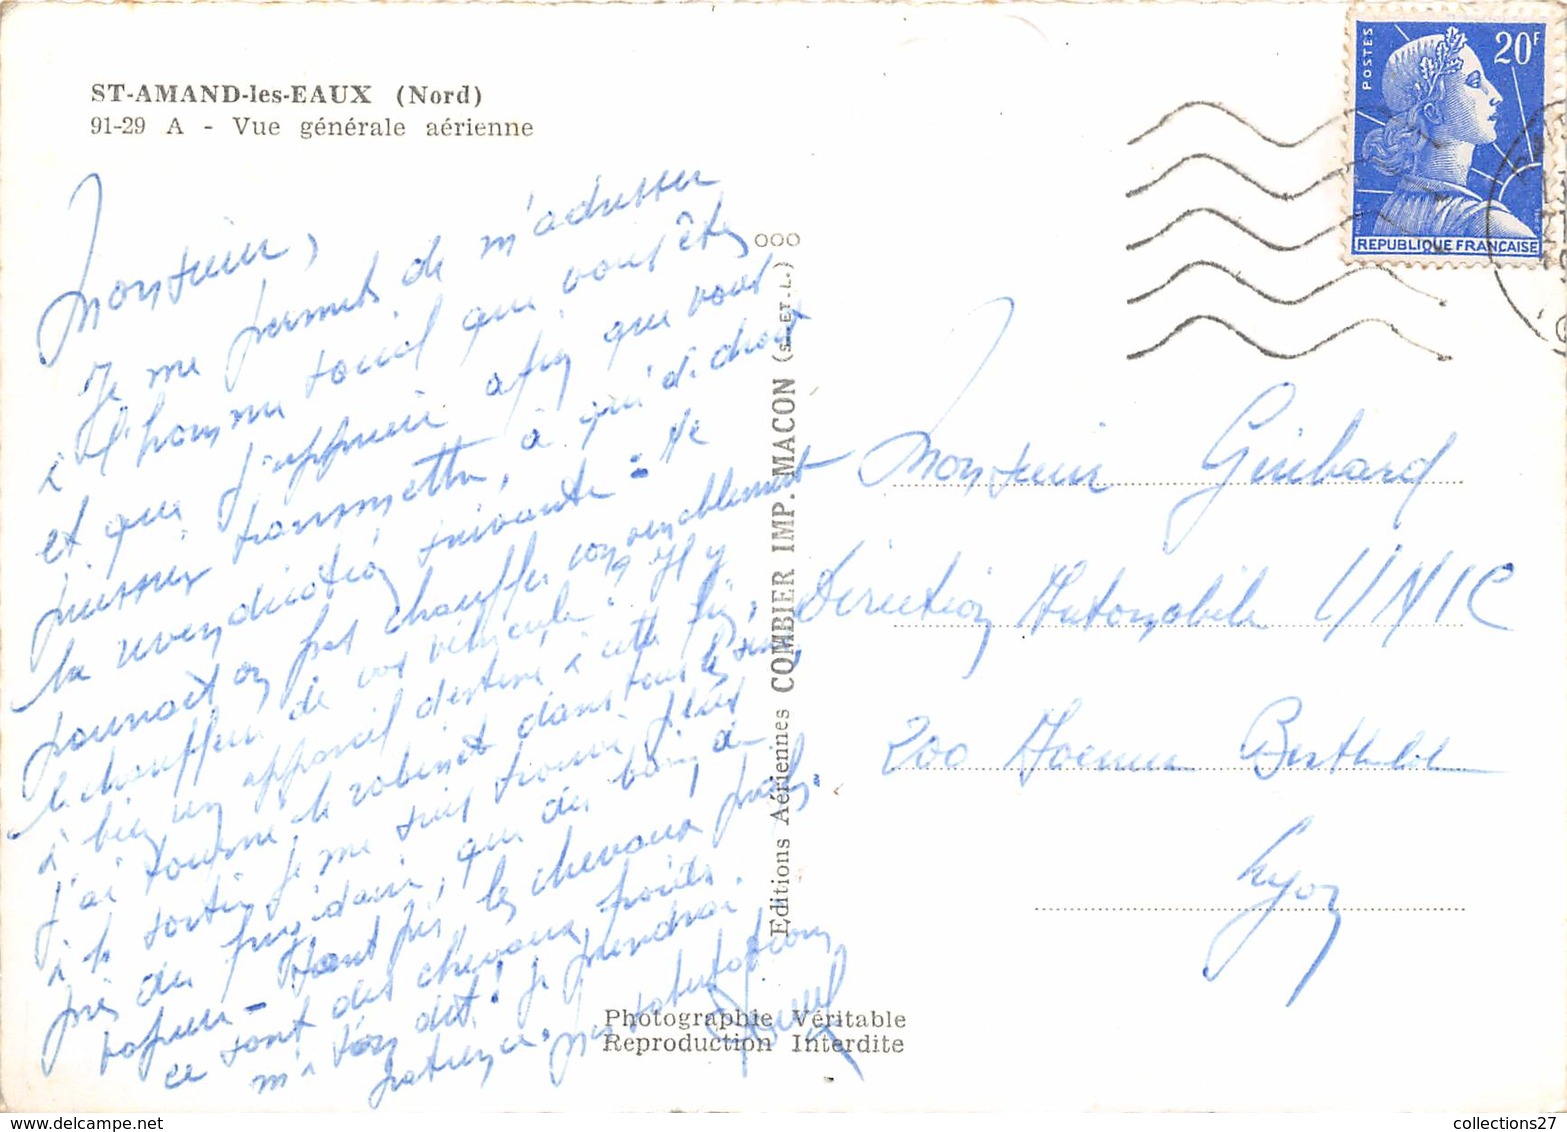 ST-AMAND-les-EAUX (Nord)
91-29 A - Vue générale aérienne
Monsieur,
Je me permets de m'adresser
à l'homme social que vous êtes
et que j'apprécie afin que vous
puissiez transmettre, à qui de droit
la revendication suivante : Ne
pourrait on pas chauffer convenablement
le chauffeur de vos véhicules ? Il y
a bien un appareil destiné à cette fin,
j'ai tourné le robinet dans tous les sens,
à la sortie je me suis trouvé plus
près du frigidaire, que des bains de
vapeur - Tant pis les chevaux
ce sont des chevaux froids
m'a t'on dit ! je prendrai
patience. Mes salutations
POSTES
20F
REPUBLIQUE FRANÇAISE
Monsieur Guibard
Direction Automobile UNIC
200 Avenue Berthelot
Lyon
Editions Aériennes COMBIER IMP. MACON (S. ET L.) OOO
Photographie Véritable
Reproduction Interdite
collections27